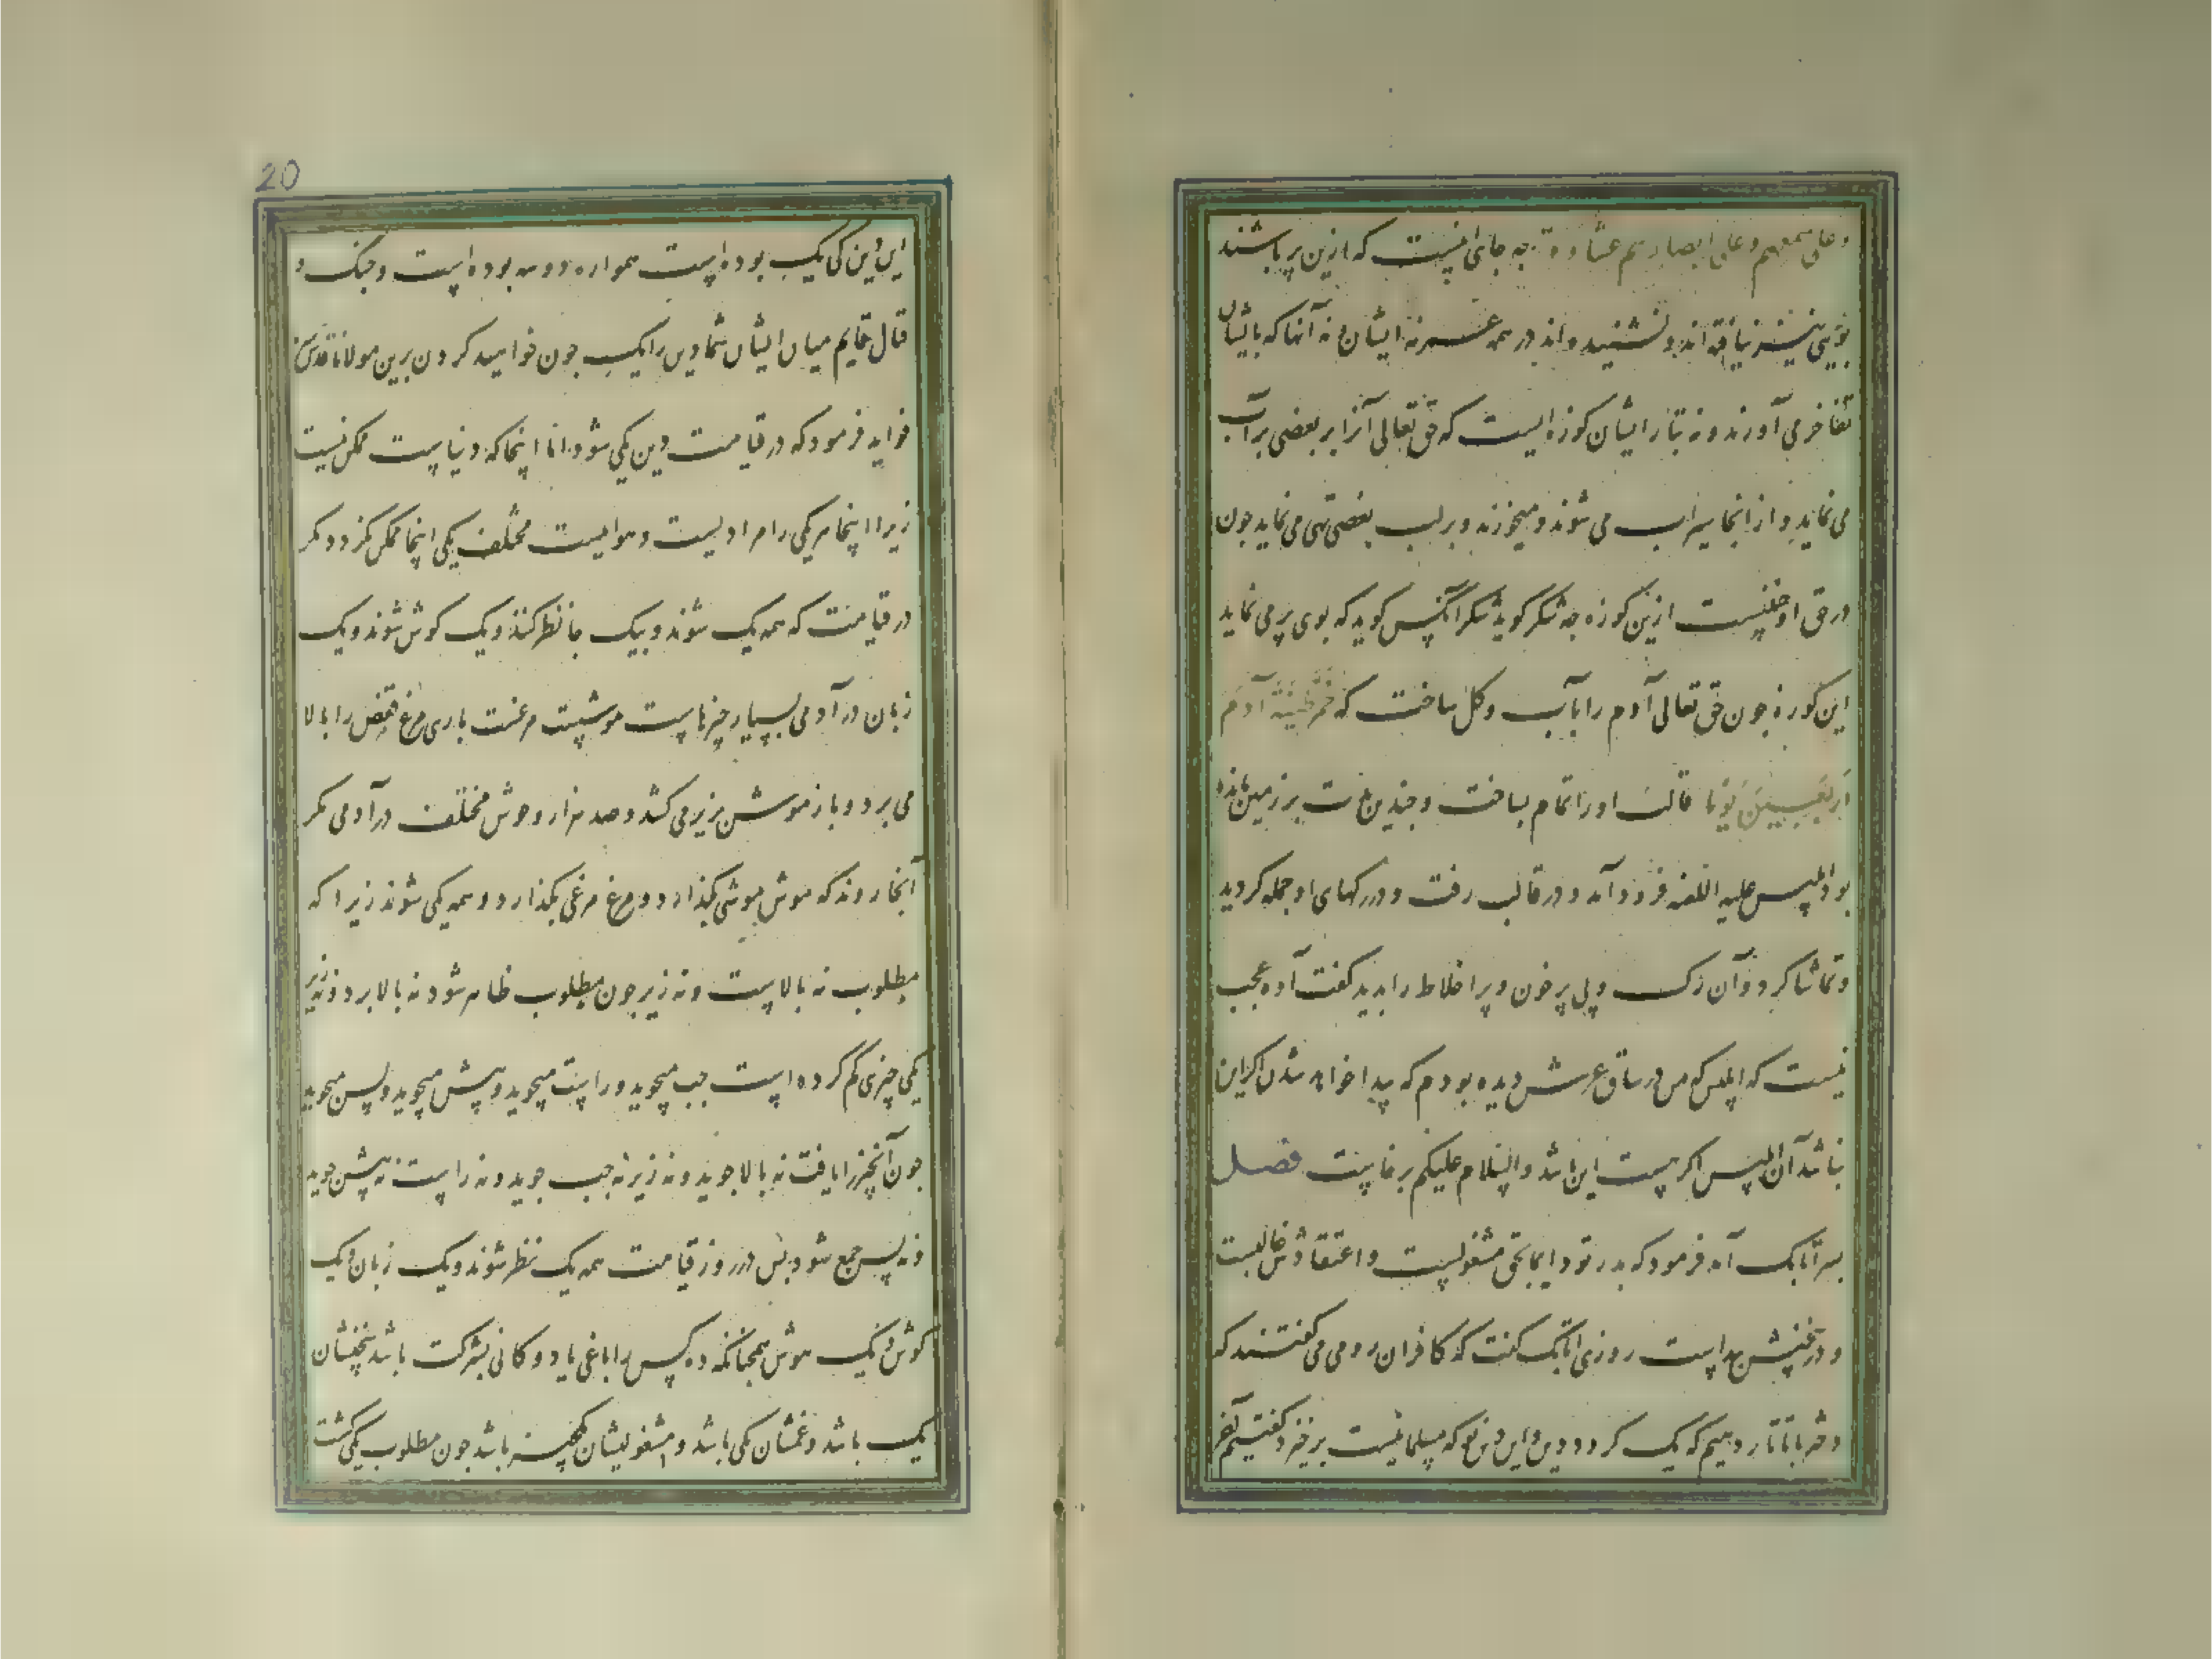 وعلی سمعهم وعلی ابصارهم غشاوة چه جای اینست که ازین پر باشند
بویی نیز نیافته اند و نشنیده اند در همه عمر نه ایشان و نه آنها که بایشان
تفاخر می آورند و نه تبار ایشان کوزه ایست که حق تعالی آنرا بر بعضی پر آب
می نماید و از انجا سیراب می شوند و میخورند و بر لب بعضی تهی می نماید چون
در حق او چنینست ازین کوزه چه شکر کوید شکر آنکس کوید که بوی پر می نماید
این کوزه چون حق تعالی آدم را بآب و کل ساخت که خمر طینة آدم
اربعین یوما قالب او را تمام بساخت و چندین مدت بر زمین مانده
بود ابلیس علیه اللعنه فرود آمد و در قالب رفت و در رکهای او جمله کردید
و تماشا کرد و آن رک و پی پر خون و پر اخلاط را بدید کفت آوه عجب
نیست که ابلیس که من در ساق عرش دیده بودم که پیدا خواهد شدن اکر این
نباشد آن ابلیس اکر هست این باشد والسلام علیکم برخاست فصل
پسر اتابک آمد فرمود که پدر تو دایما بحق مشغولست و اعتقادش غالبست
و در سخنش پیداست روزی اتابک کفت که کافران رومی می کفتند که
دختر بتاتار دهیم که یک کردد دین و این دین نو که مسلمانیست برخیزد کفتیم آخر
20
این دین کی یک بوده است همواره دو و سه بوده است و جنک و
قتال قایم میان ایشان شما دین را یک چون خواهید کردن برین مولانا قدس سره
فواید فرمود که در قیامت دین یکی شود اما اینجا که دنیاست ممکن نیست
زیرا اینجا هر یکی را مرادیست و هواییست مختلف یکی اینجا ممکن نکردد مکر
در قیامت که همه یک شوند و بیک جا نظر کنند و یک کوش شوند و یک
زبان در آدمی بسیار چیزهاست موشست مرغست باری مرغ قفص را بالا
می برد و باز موشش بزیر می کشد و صد هزار وحوش مختلف در آدمی مکر
آنجا روند که موش موشی بکذارد و مرغ مرغی بکذارد و همه یکی شوند زیرا که
مطلوب نه بالاست و نه زیر چون مطلوب ظاهر شود نه بالا برد و نه زیر
یکی چیزی کم کرده است چپ میجوید و راست میجوید و پیش میجوید و پس میجوید
چون آن چیز را یافت نه بالا جوید و نه زیر نه چپ جوید و نه راست نه پیش جوید
و نه پس جمع شود پس در روز قیامت همه یک نظر شوند و یک زبان و یک
کوش و یک هوش همچنانکه ده کس را باغی یا دوکانی بشرکت باشد سخنشان
یک باشد و غمشان یکی باشد و مشغولیشان بیک چیز باشد چون مطلوب یکی کشت